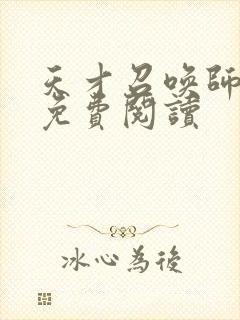 天才召喚師
免費閱讀
冰心為後